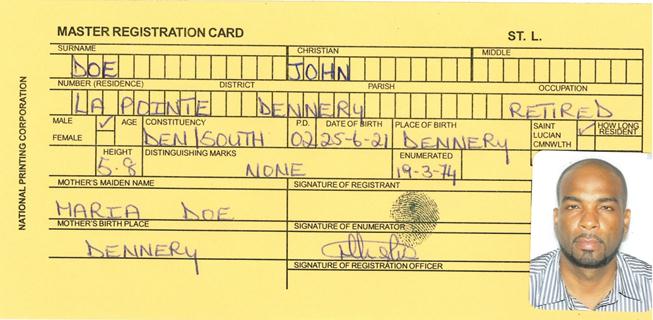 MASTER REGISTRATION CARD ST. L.
SURNAME CHRISTIAN MIDDLE
DOE JOHN
NUMBER (RESIDENCE) DISTRICT PARISH OCCUPATION
LA POINTE DENNERY RETIRED
MALE ✓ AGE CONSTITUENCY P.D. DATE OF BIRTH PLACE OF BIRTH SAINT ✓ HOW LONG
FEMALE DEN/SOUTH 02 25-6-21 DENNERY LUCIAN RESIDENT
CMNWLTH
HEIGHT DISTINGUISHING MARKS ENUMERATED
5-8 NONE 19-3-74
MOTHER'S MAIDEN NAME SIGNATURE OF REGISTRANT
MARIA DOE
MOTHER'S BIRTH PLACE SIGNATURE OF ENUMERATOR
DENNERY
SIGNATURE OF REGISTRATION OFFICER
NATIONAL PRINTING CORPORATION